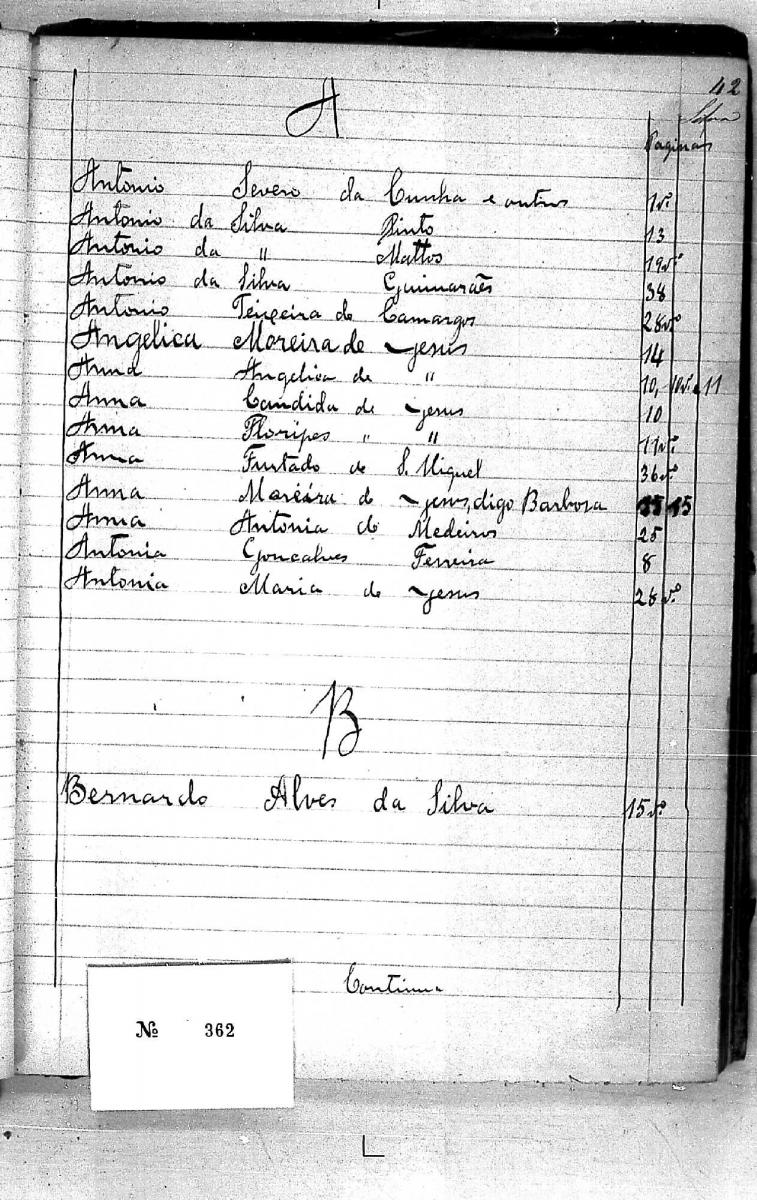 42
A
Paginas
Antonio Severo da Cunha e outros 1vº
Antonio da Silva Pinto 13
Antonio da " Mattos 19vº
Antonio da Silva Guimarães 38
Antonio Teixeira de Camargos 28vº
Angelica Moreira de Jesus 14
Anna Angelica de " 10, 10vº e 11
Anna Candida de Jesus 10
Anna Floripes " " 11vº
Anna Furtado de S. Miguel 36vº
Anna Moreira de Jesus, digo Barbosa 15
Anna Antonia de Medeiros 25
Antonia Gonçalves Ferreira 8
Antonia Maria de Jesus 28vº
B
Bernardo Alves da Silva 15vº
Continua
Nº 362